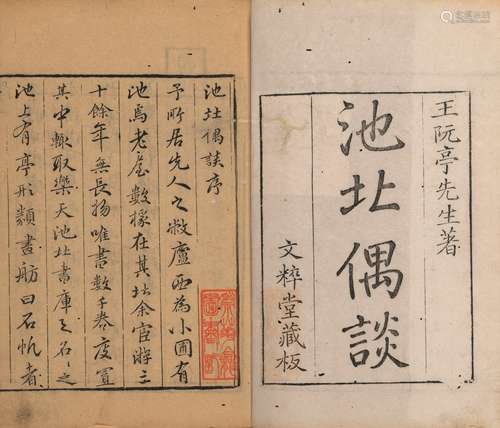 王阮亭先生著
池北偶談
文粹堂藏板
池北偶談序
予所居先人之敝廬西為小圃有
池焉老屋數椽在其北余宦游三
十餘年無長物唯書數千卷庋置
其中輒取樂天池北書庫之名名之
池上有亭形類畫舫曰石帆者